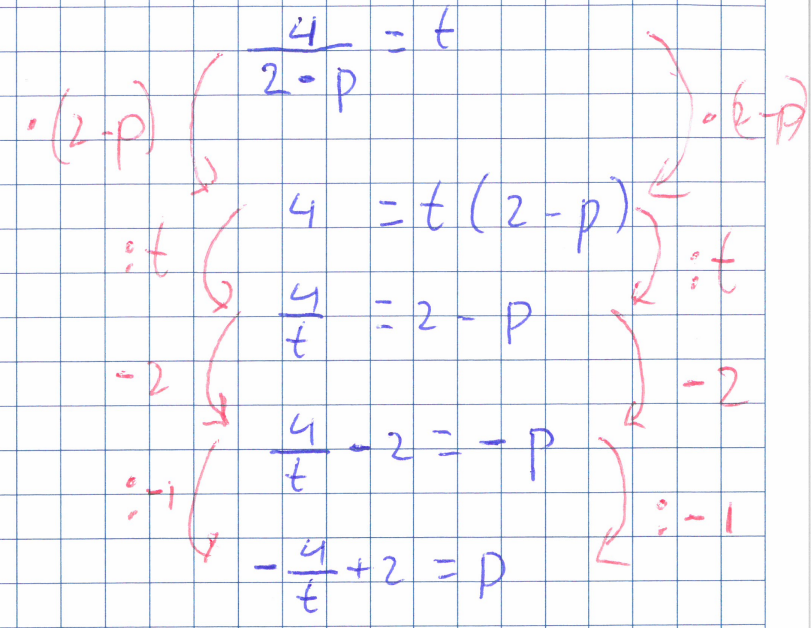 4/(2-p) = t
·(2-p) ·(2-p)
4 = t(2-p)
:t :t
4/t = 2-p
-2 -2
4/t - 2 = -p
:-1 :-1
-4/t + 2 = p